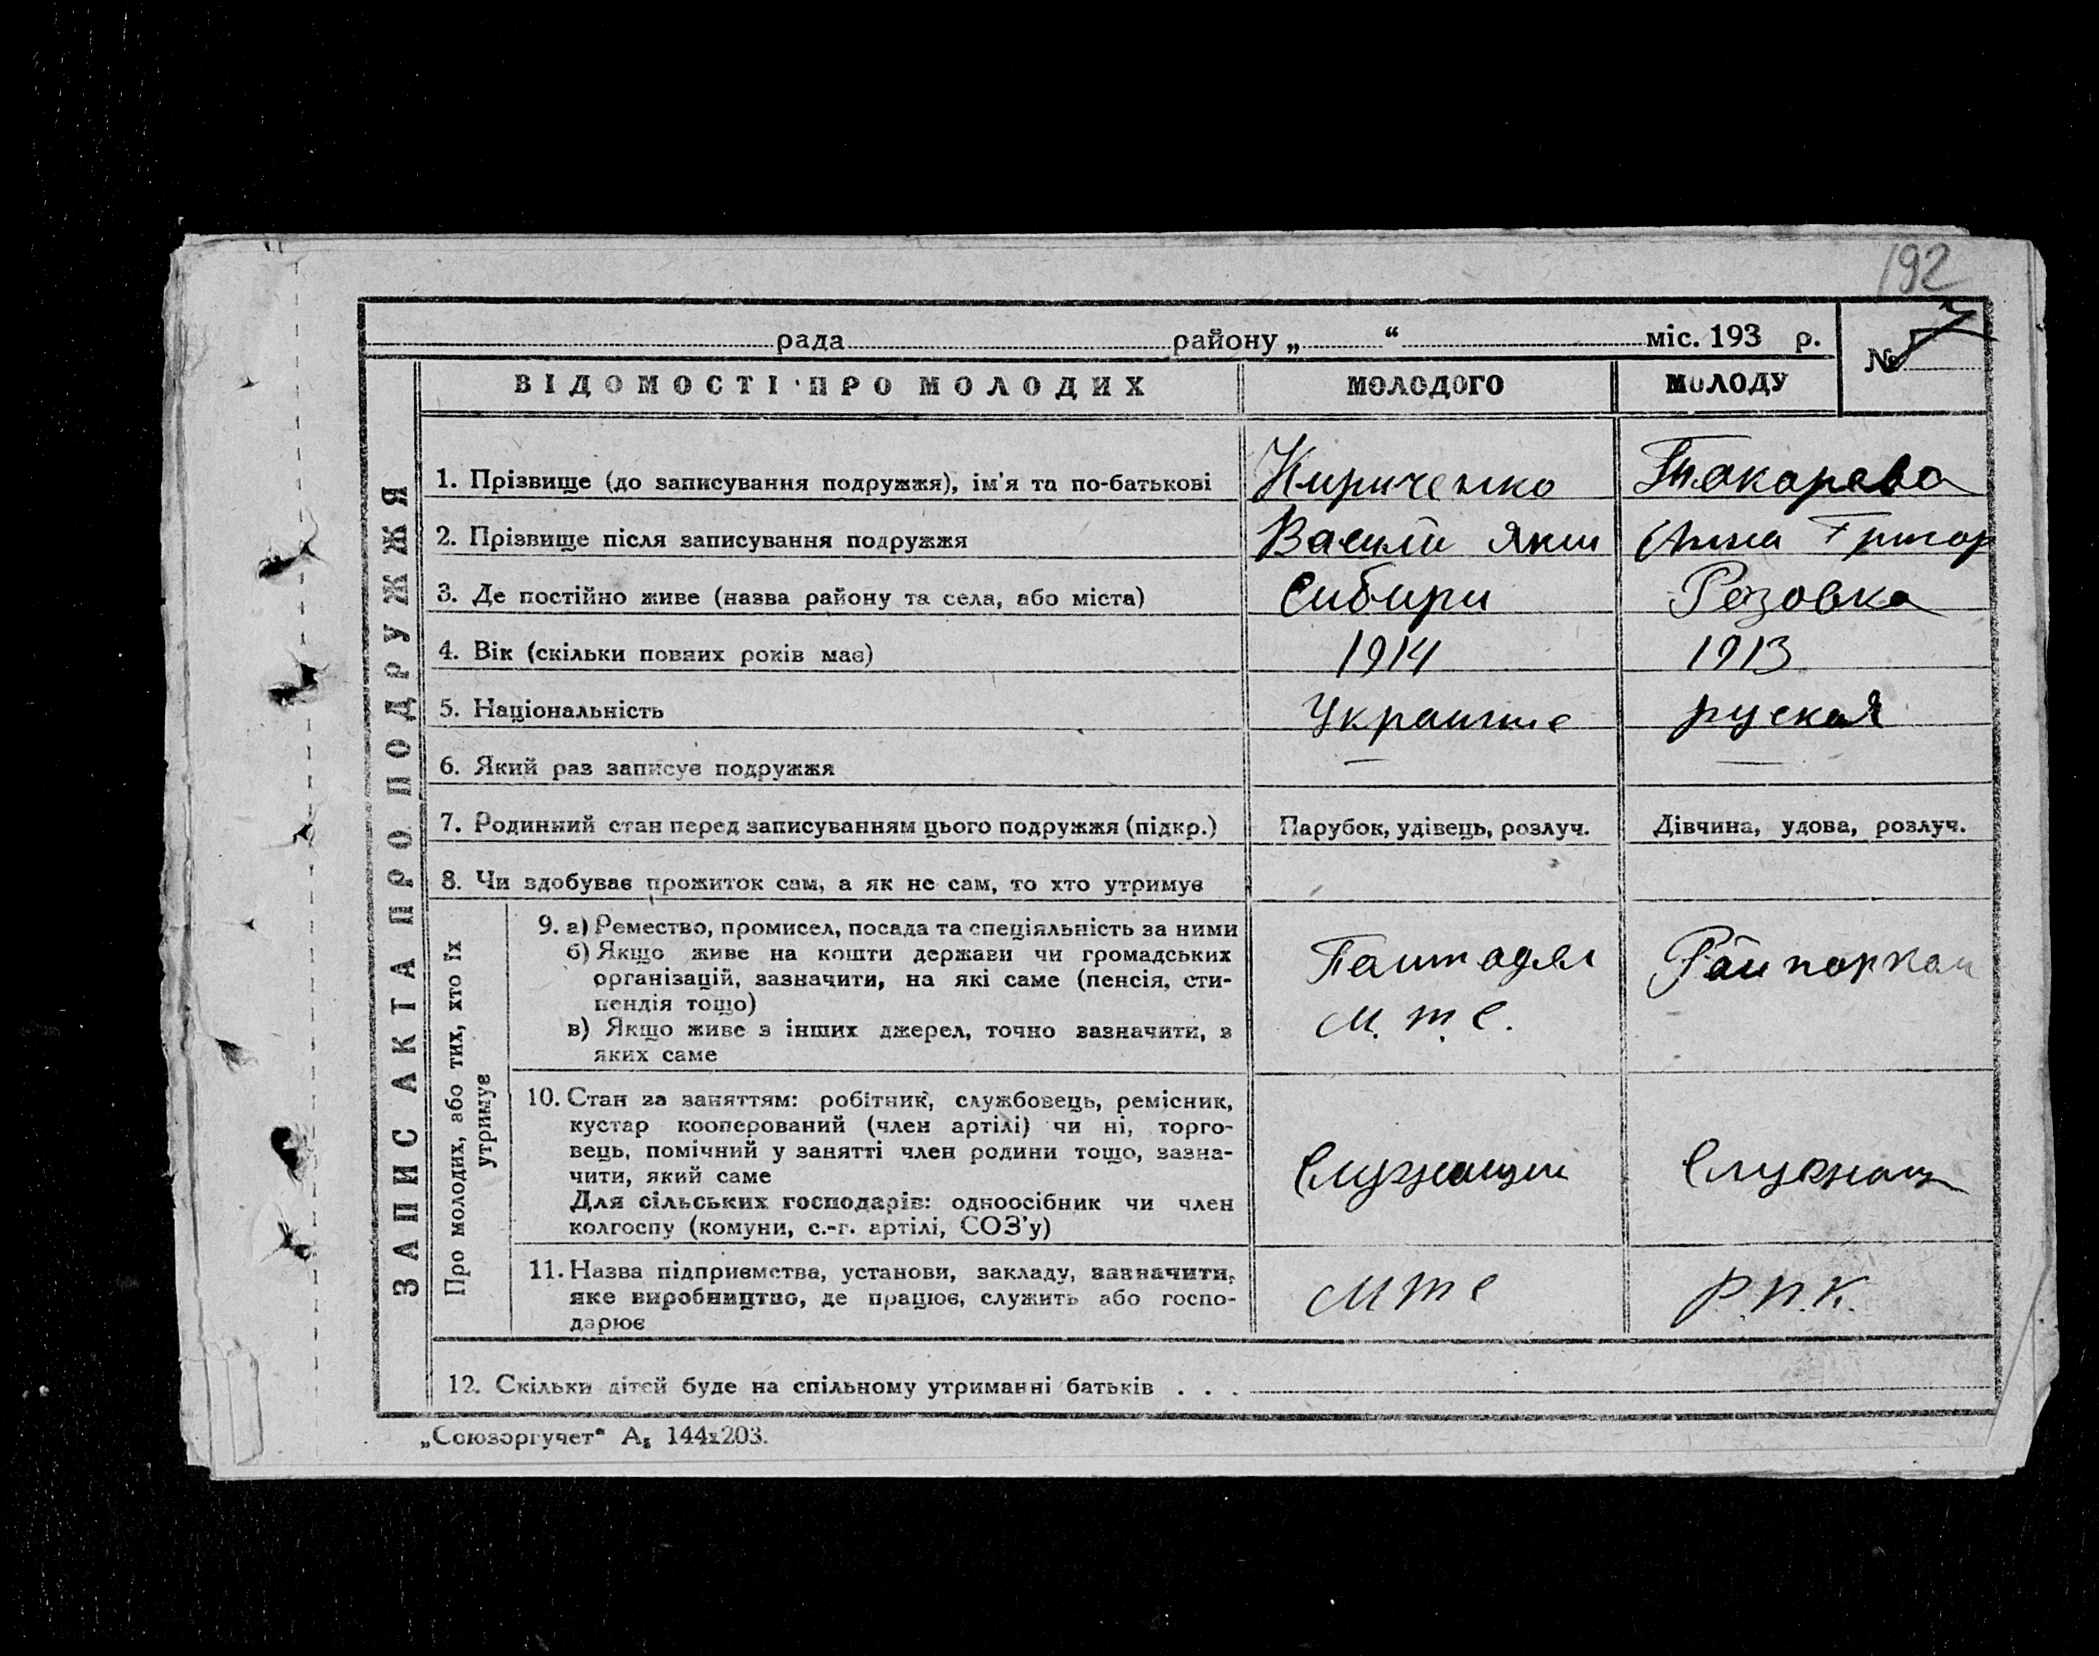 192
рада района „ “ міс. 193 р.
№ 7
ВІДОМОСТІ ПРО МОЛОДИХ МОЛОДОГО МОЛОДУ
ЗАПИС АКТА ПРО ПОДРУЖЖЯ
1. Прізвище (до записування подружжя), ім'я та по-батькові Кириченко Токарева
2. Прізвище після записування подружжя Василий Яким Анна Григор
3. Де постійно живе (назва району та села, або міста) Сибири Розовка
4. Вік (скільки повних років має) 1914 1913
5. Національність Украинце руская
6. Який раз записує подружжя — —
7. Родинний стан перед записуванням цього подружжя (підкр.) Парубок, удівець, розлуч. Дівчина, удова, розлуч.
8. Чи здобуває прожиток сам, а як не сам, то хто утримує
Про молодих, або тих, хто їх
утримує
9. а) Ремество, промисел, посада та спеціяльність за ними
б) Якщо живе на кошти держави чи громадських
організацій, зазначити, на які саме (пенсія, сти-
пендія тощо)
в) Якщо живе з інших джерел, точно зазначити, з
яких саме
М. Т. С.
Райпарком
10. Стан за заняттям: робітник, службовець, ремісник,
кустар кооперований (член артілі) чи ні, торго-
вець, помічний у занятті член родини тощо, зазна-
чити, який саме
Для сільських господарів: одноосібник чи член
колгоспу (комуни, с.-г. артілі, СОЗ'у)
Служащий Служащ
11. Назва підприємства, установи, закладу, зазначити,
яке виробництво, де працює, служить або госпо-
дарює
МТС Р.П.К.
12. Скільки дітей буде на спільному утриманні батьків . . .
„Союзоргучет“ А₅ 144х203.